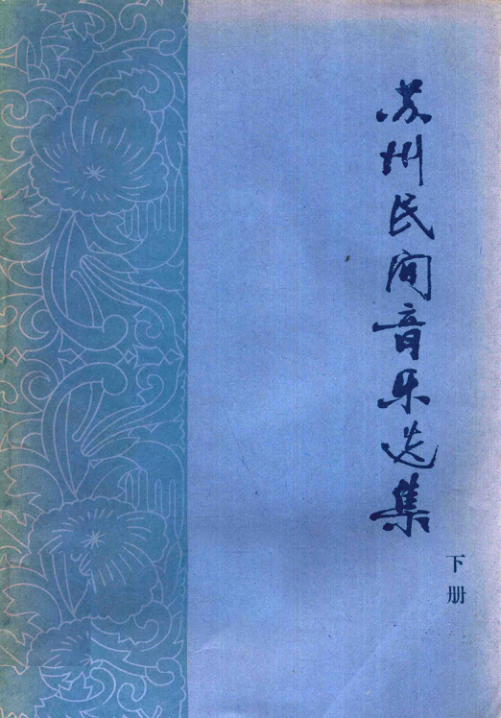 苏州民间音乐选集
下册